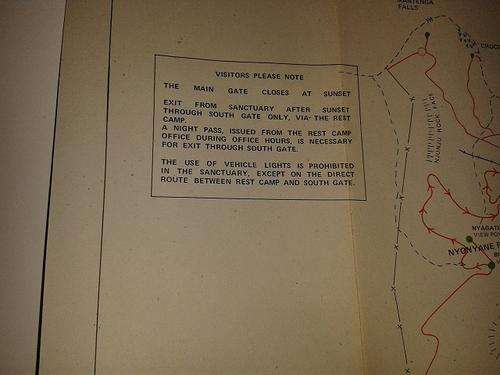 VISITORS PLEASE NOTE
THE MAIN GATE CLOSES AT SUNSET
EXIT FROM SANCTUARY AFTER SUNSET
THROUGH SOUTH GATE ONLY, VIA THE REST
CAMP.
A NIGHT PASS, ISSUED FROM THE REST CAMP
OFFICE DURING OFFICE HOURS, IS NECESSARY
FOR EXIT THROUGH SOUTH GATE.
THE USE OF VEHICLE LIGHTS IS PROHIBITED
IN THE SANCTUARY, EXCEPT ON THE DIRECT
ROUTE BETWEEN REST CAMP AND SOUTH GATE.
MANTENGA
FALLS